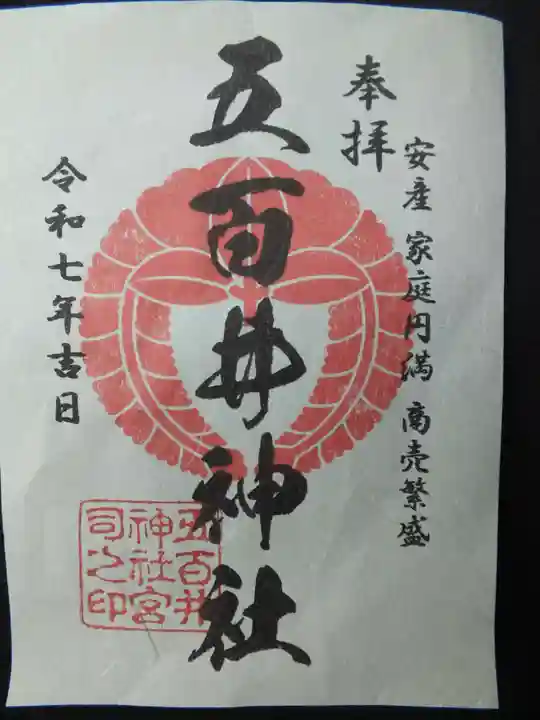 安産 家庭円満 商売繁盛
奉拝
五百井神社
令和七年吉日
五百井
神社宮
司之印